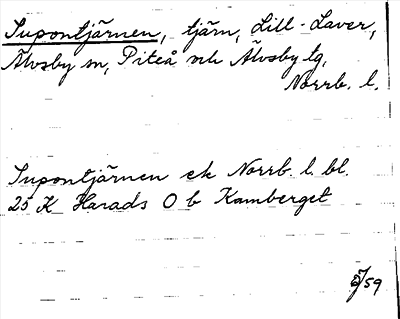 Supontjärnen, tjärn, Lill-Laver,
Älvsby sn, Piteå och Älvsby tg,
Norrb. l.
Supontjärnen ek Norrb. l. bl.
25 K Harads O b Kamberget
/59